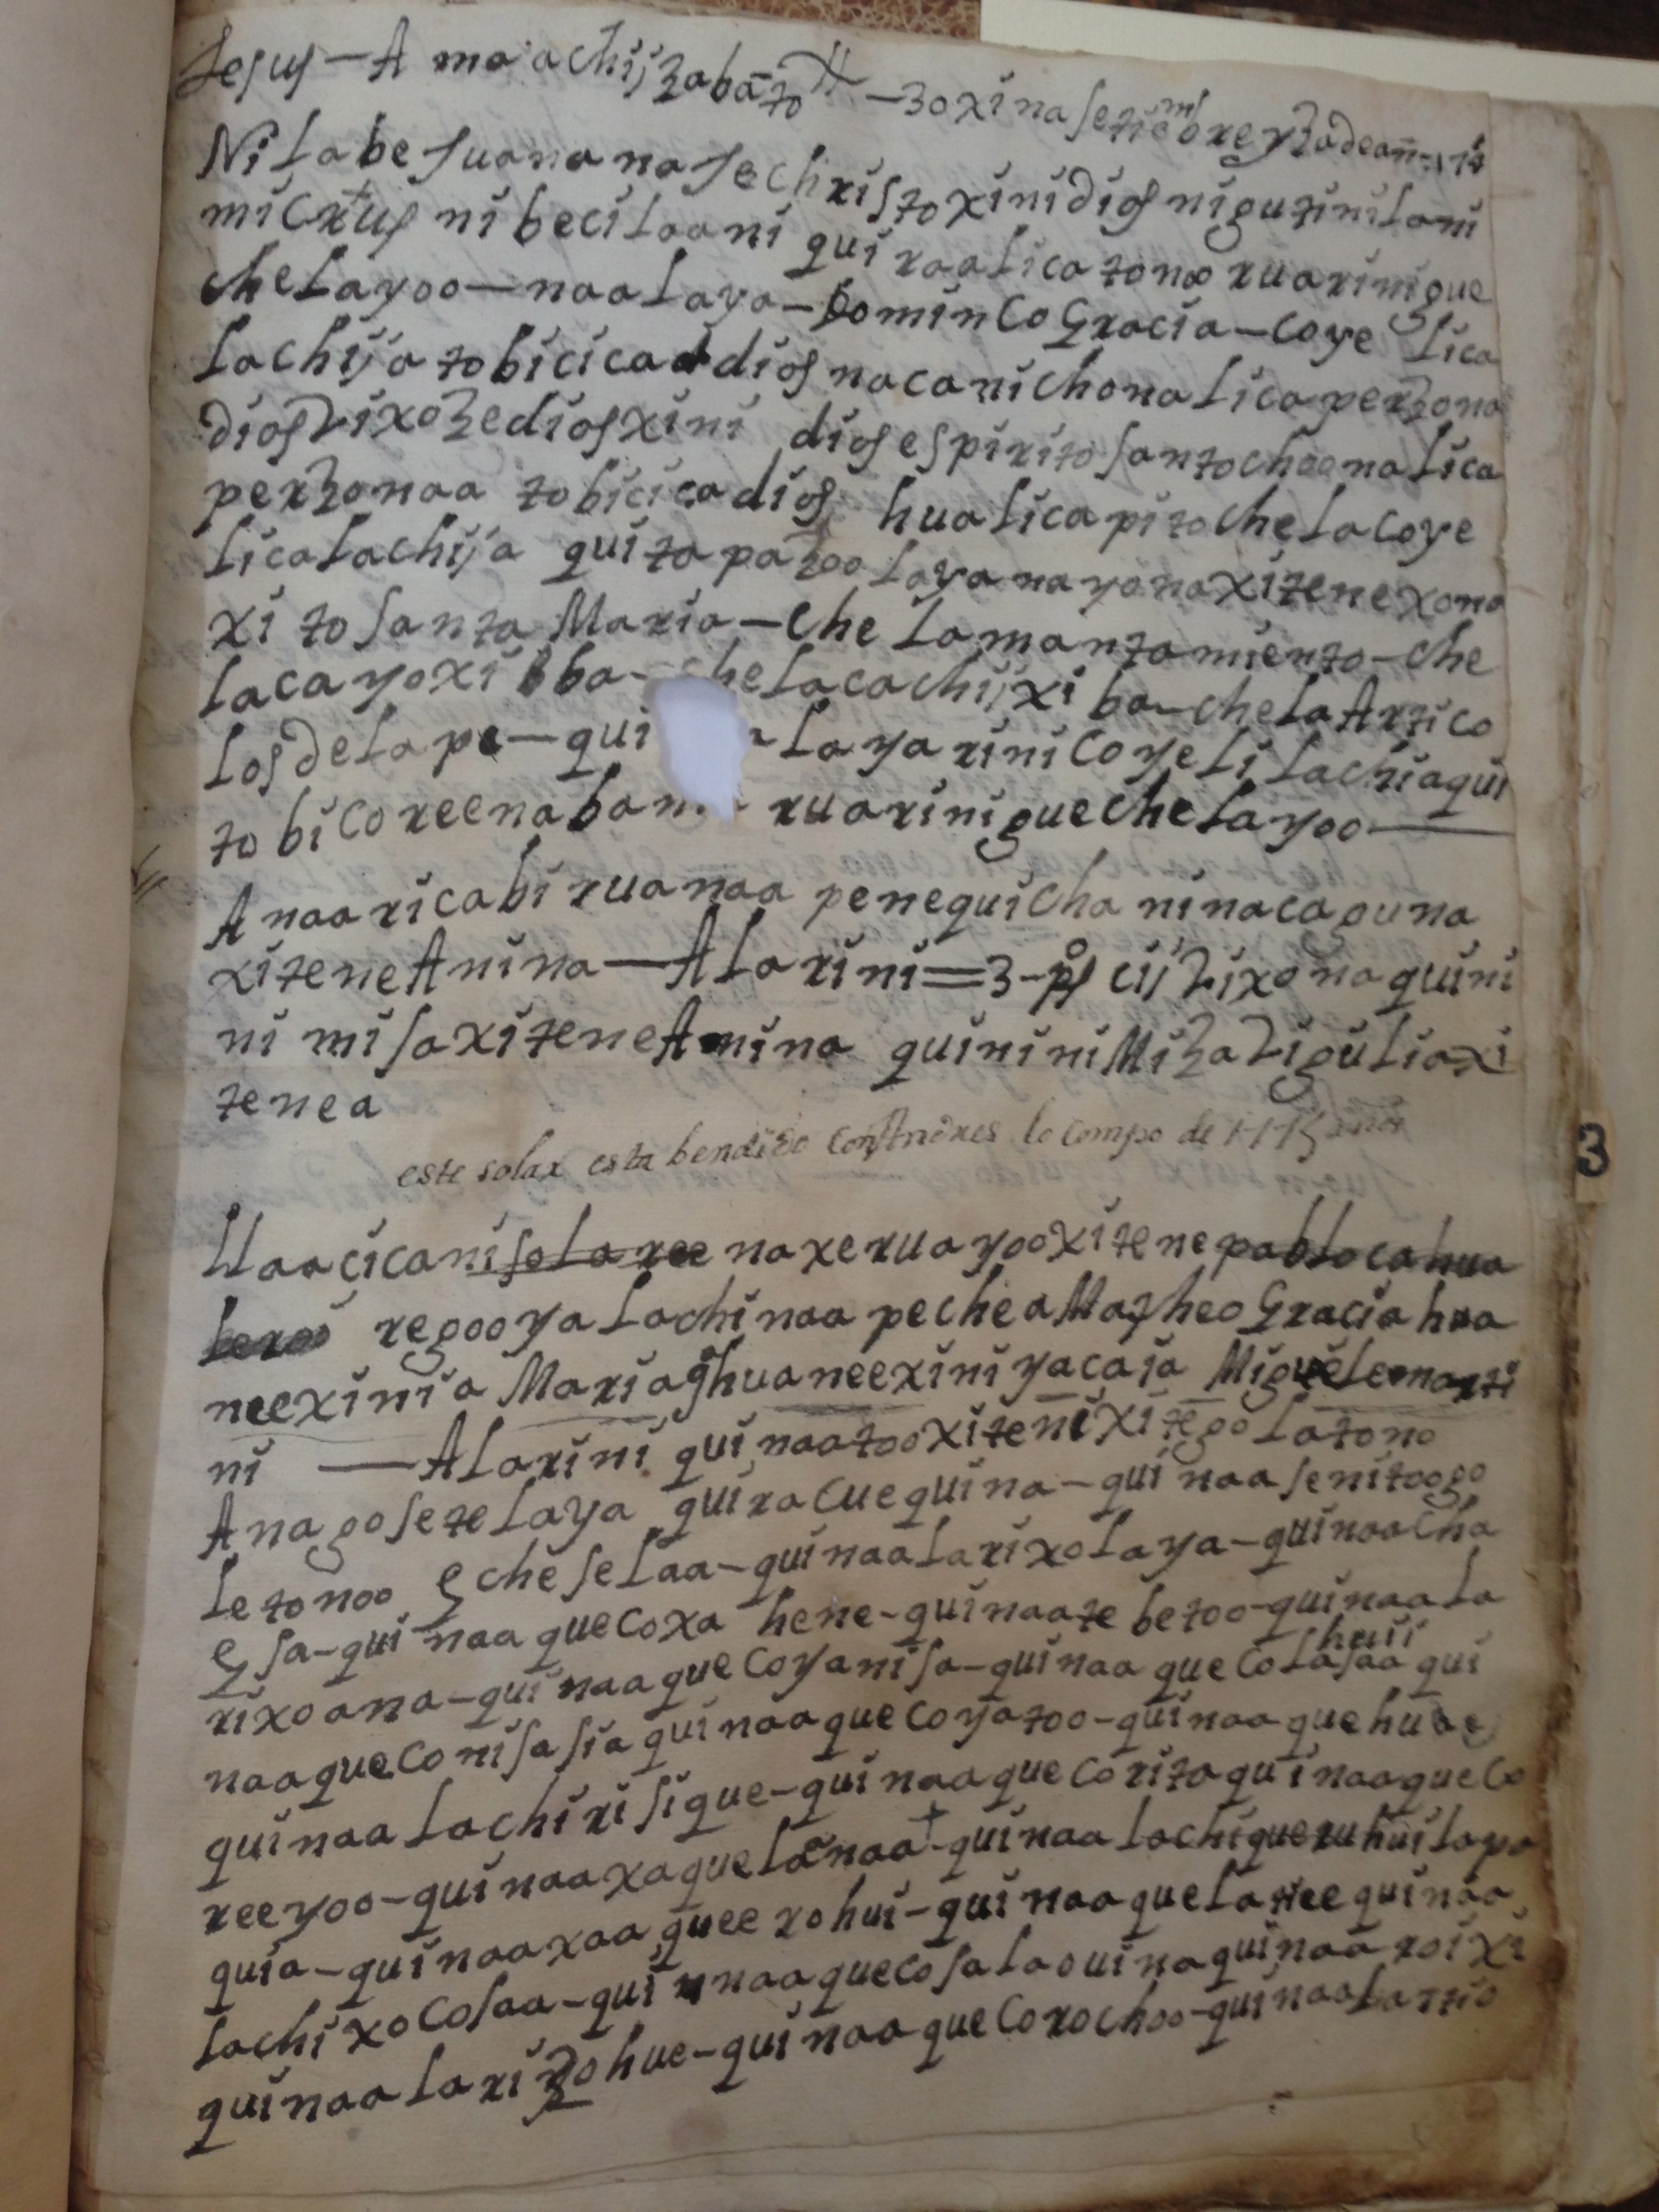 Jesus — A ma achij zabato — zoxina setiembre yza de año 17
Ni la be Juana na Jechristo xini dios ni gutini lani
micrus ni becilaani quiraa lica tonoo ruarini que
chelayoo — naa laya — Dominco Gracia — coye lica
lachija tobicica dios naca ni chona lica perzona
dios vixoze dios xini dios espirito santo cheena lica
perzonaa tobicica dios hualica pito chela coye
lica lachija quita pazoo laya nayona xitene xona
xi to santa Maria — chela mantamiento — che
la cayo xi ba — chela cachij xi ba — chela Artico
los de la pe — qui laya rini coye li lachia qui
to bi coree na bani ruarini que chelayoo —
A naa rica bi ruanaa penequicha ni naca guna
xitene Anina — A la rini = 3 – ps cij vixona quini
ni misa xitene Amina quinini Miza vigulia xi
tenea
este solar esta bendido con Andres lo compo de 1–1–15 años
Llaacica ni solaree naxe rua yoo xitene pablo cahua
regoo ya lachi naa pechea Matheo Gracia hua
neexini a Maria ghuaneexini ya caja Miguele marti
ni — A la rini quinaa too xiteni xitego latono
A nagosete laya quiracue quina — quinaa senitoogo
letonoo g che selaa — quinaa larixo laya — quinaa cha
g sa — quinaa queco xa hene — quinaate betoo — quinaa la
rixo ana — quinaa queco yanisa — quinaa queco lasaa qui
huii
naa queco nisa sia quinaa queco yatoo — quinaa que
quinaa lachi risique — quinaa queco rita quinaa queco
reeyoo — quinaa xaquela naa † quinaa lachi queruhui lapa
quia — quinaa xaa quee rohui — quinaa quela nee quinaa
lachi xoco saa — quinnaa queco sa laouina quinaa roixi
quinaa la rizohue — quinaa queco rochoo — quinaa
3